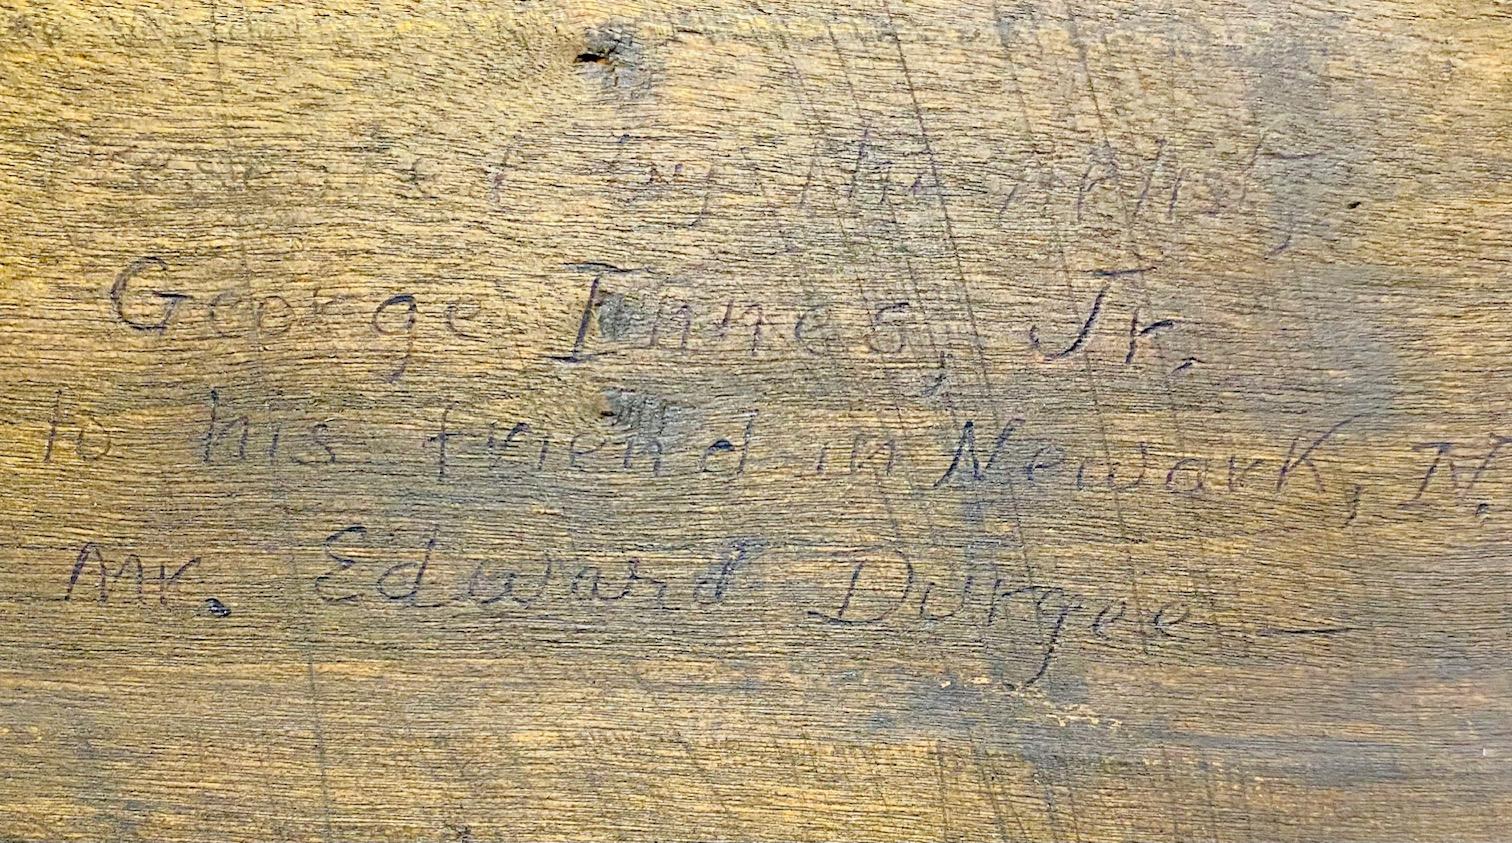 Presented by the Artist,
George Innes, Jr.
to his friend in Newark, N.
Mr. Edward Durgee —